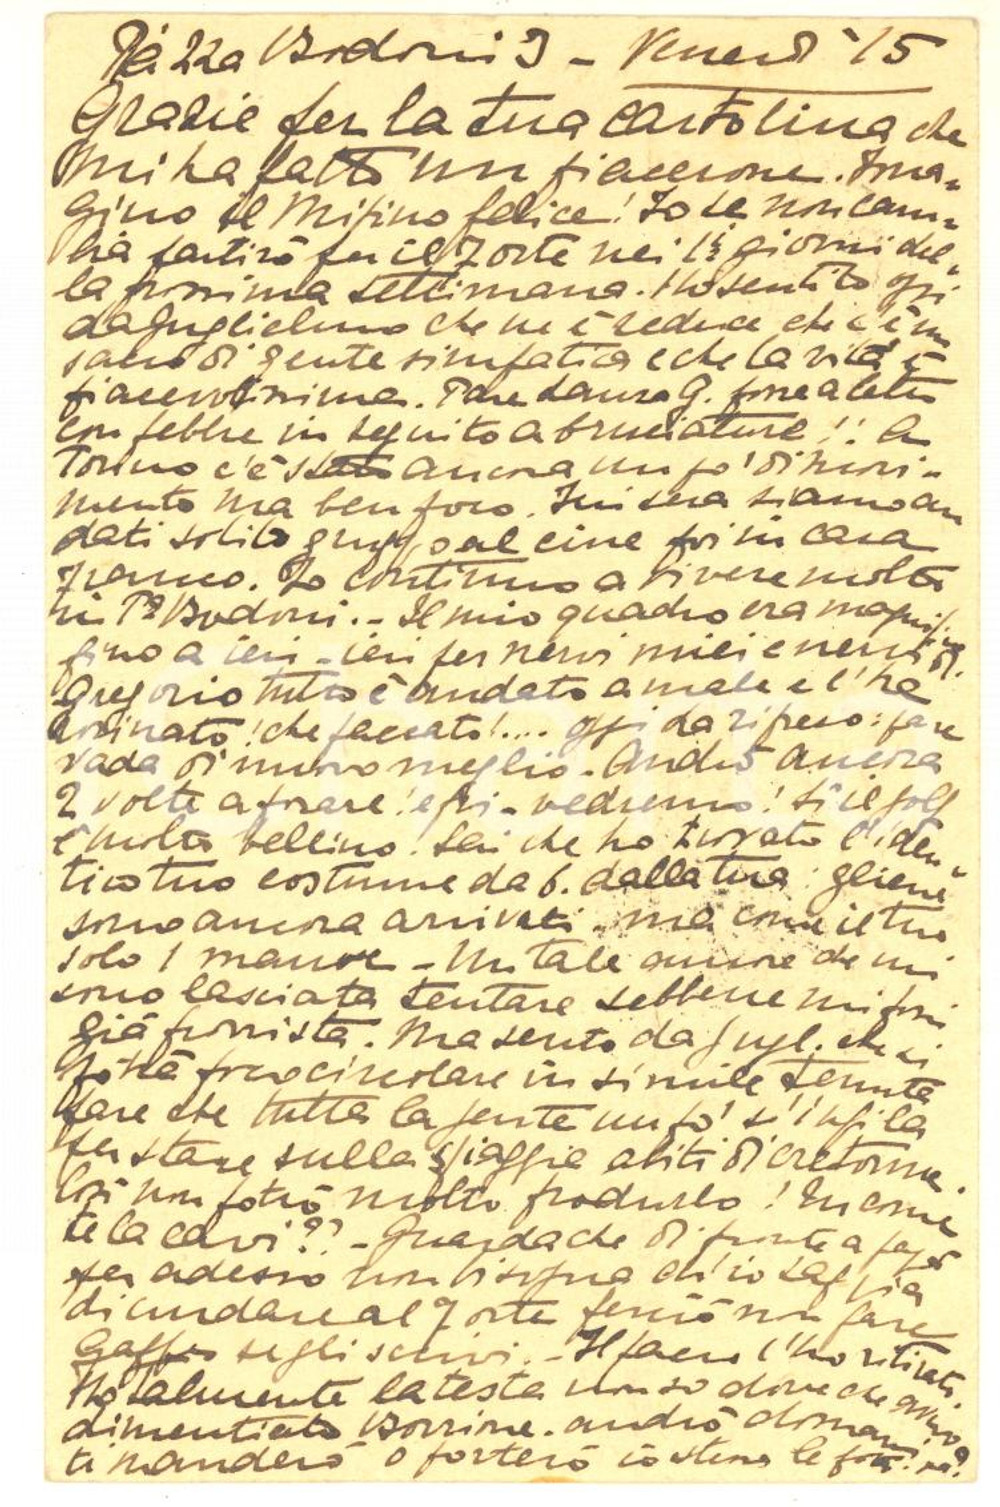 Piazza Bodoni 3 - Venerdì 15
Grazie per la tua cartolina che
mi ha fatto un piacerone. Ima-
gino il Mipino felice! Io se non cam-
bia partirò per il Forte nei 1i giorni del-
la prossima settimana. Ho sentito oggi
da Guglielmo che ne è reduce che c'è un
sacco di gente simpatica e che la vita è
piacevolissima. Pare Laura G. fosse a letto
con febbre in seguito a bruciature!! A
Torino c'è stato ancora un po' di movi-
mento ma ben poco. Ieri sera siamo an
dati solito gruppo al cine poi in casa
Franco. Io continuo a vivere molto
in Pza Bodoni. - Il mio quadro era magnifico
fino a ieri - ieri per nervi miei e nervi di
Gregorio tutto è andato a male e l'ha
rovinato! che peccato!.... oggi ha ripreso: pare
vada di nuovo meglio. Andrò ancora
2 volte a posare! e poi - vedremo! Sì il golf
è molto bellino. Sai che ho trovato l'iden-
tico tuo costume da b. dalla tua: gliene
sono ancora arrivati - ma come il tuo
solo 1 marron - Un tale amore che mi
sono lasciata tentare sebbene mi fossi
già provvista. Ma sento da Gugl. che si
potrà poco circolare in simile tenuta
pare che tutta la gente un po' s'infila
per stare sulla spiaggia abiti di cretonne.
Così non potrò molto produrlo! Tu come
te la cavi?? - Guarda che di fronte a papà
per adesso non bisogna ch'io sappia
di andare al Forte perciò non fare
gaffes se gli scrivi. - Il pacco l'ho ritirato.
Ho talmente la testa non so dove che avevo
dimenticato Borrione. andrò domani
ti manderò o porterò io stessa le foto.